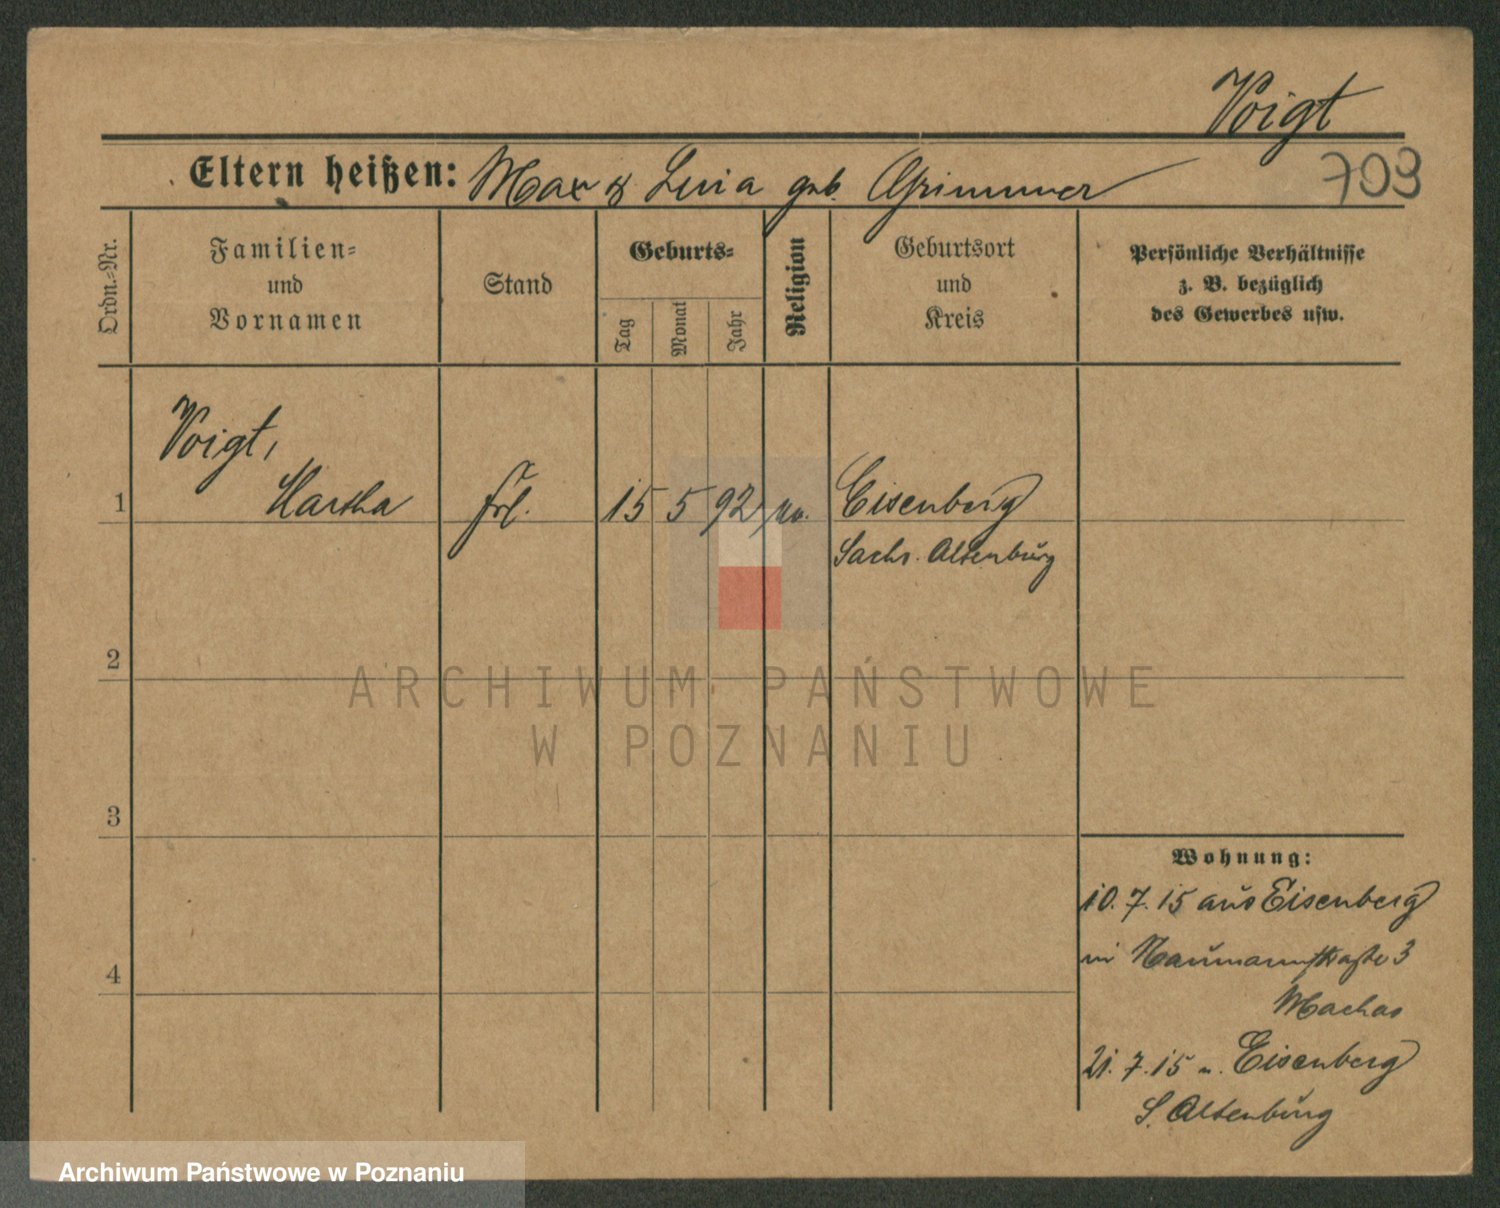 Voigt
703
Eltern heißen: Max & Lina geb. Grimmer
Ordn.=Nr.
Familien=
und
Vornamen
Stand
Geburts=
Tag
Monat
Jahr
Religion
Geburtsort
und
Kreis
Persönliche Verhältnisse
z. B. bezüglich
des Gewerbes usw.
Voigt,
1 Martha Frl. 15 5 92 ev. Eisenberg
Sachs. Altenburg
2
3
4
Wohnung:
10.7.15 aus Eisenberg
in Naumannstraße 3
21.7.15 n. Eisenberg
S. Altenburg
ARCHIWUM PAŃSTWOWE
W POZNANIU
Archiwum Państwowe w Poznaniu